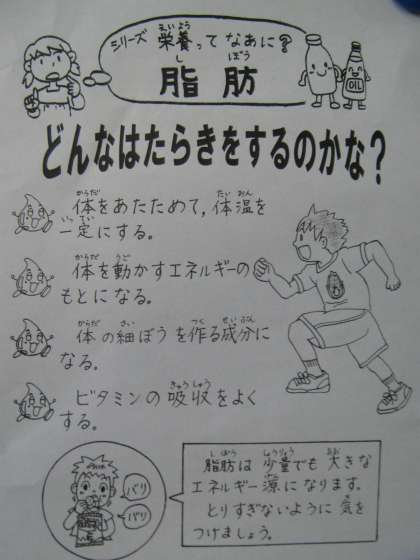 シリーズ 栄養ってなあに?
脂肪
OIL
どんなはたらきをするのかな?
体をあたためて,体温を
一定にする。
体を動かすエネルギーの
もとになる。
体の細ぼうを作る成分に
なる。
ビタミンの吸収をよく
する。
バリ
バリ
脂肪は少量でも大きな
エネルギー源になります。
とりすぎないように気を
つけましょう。